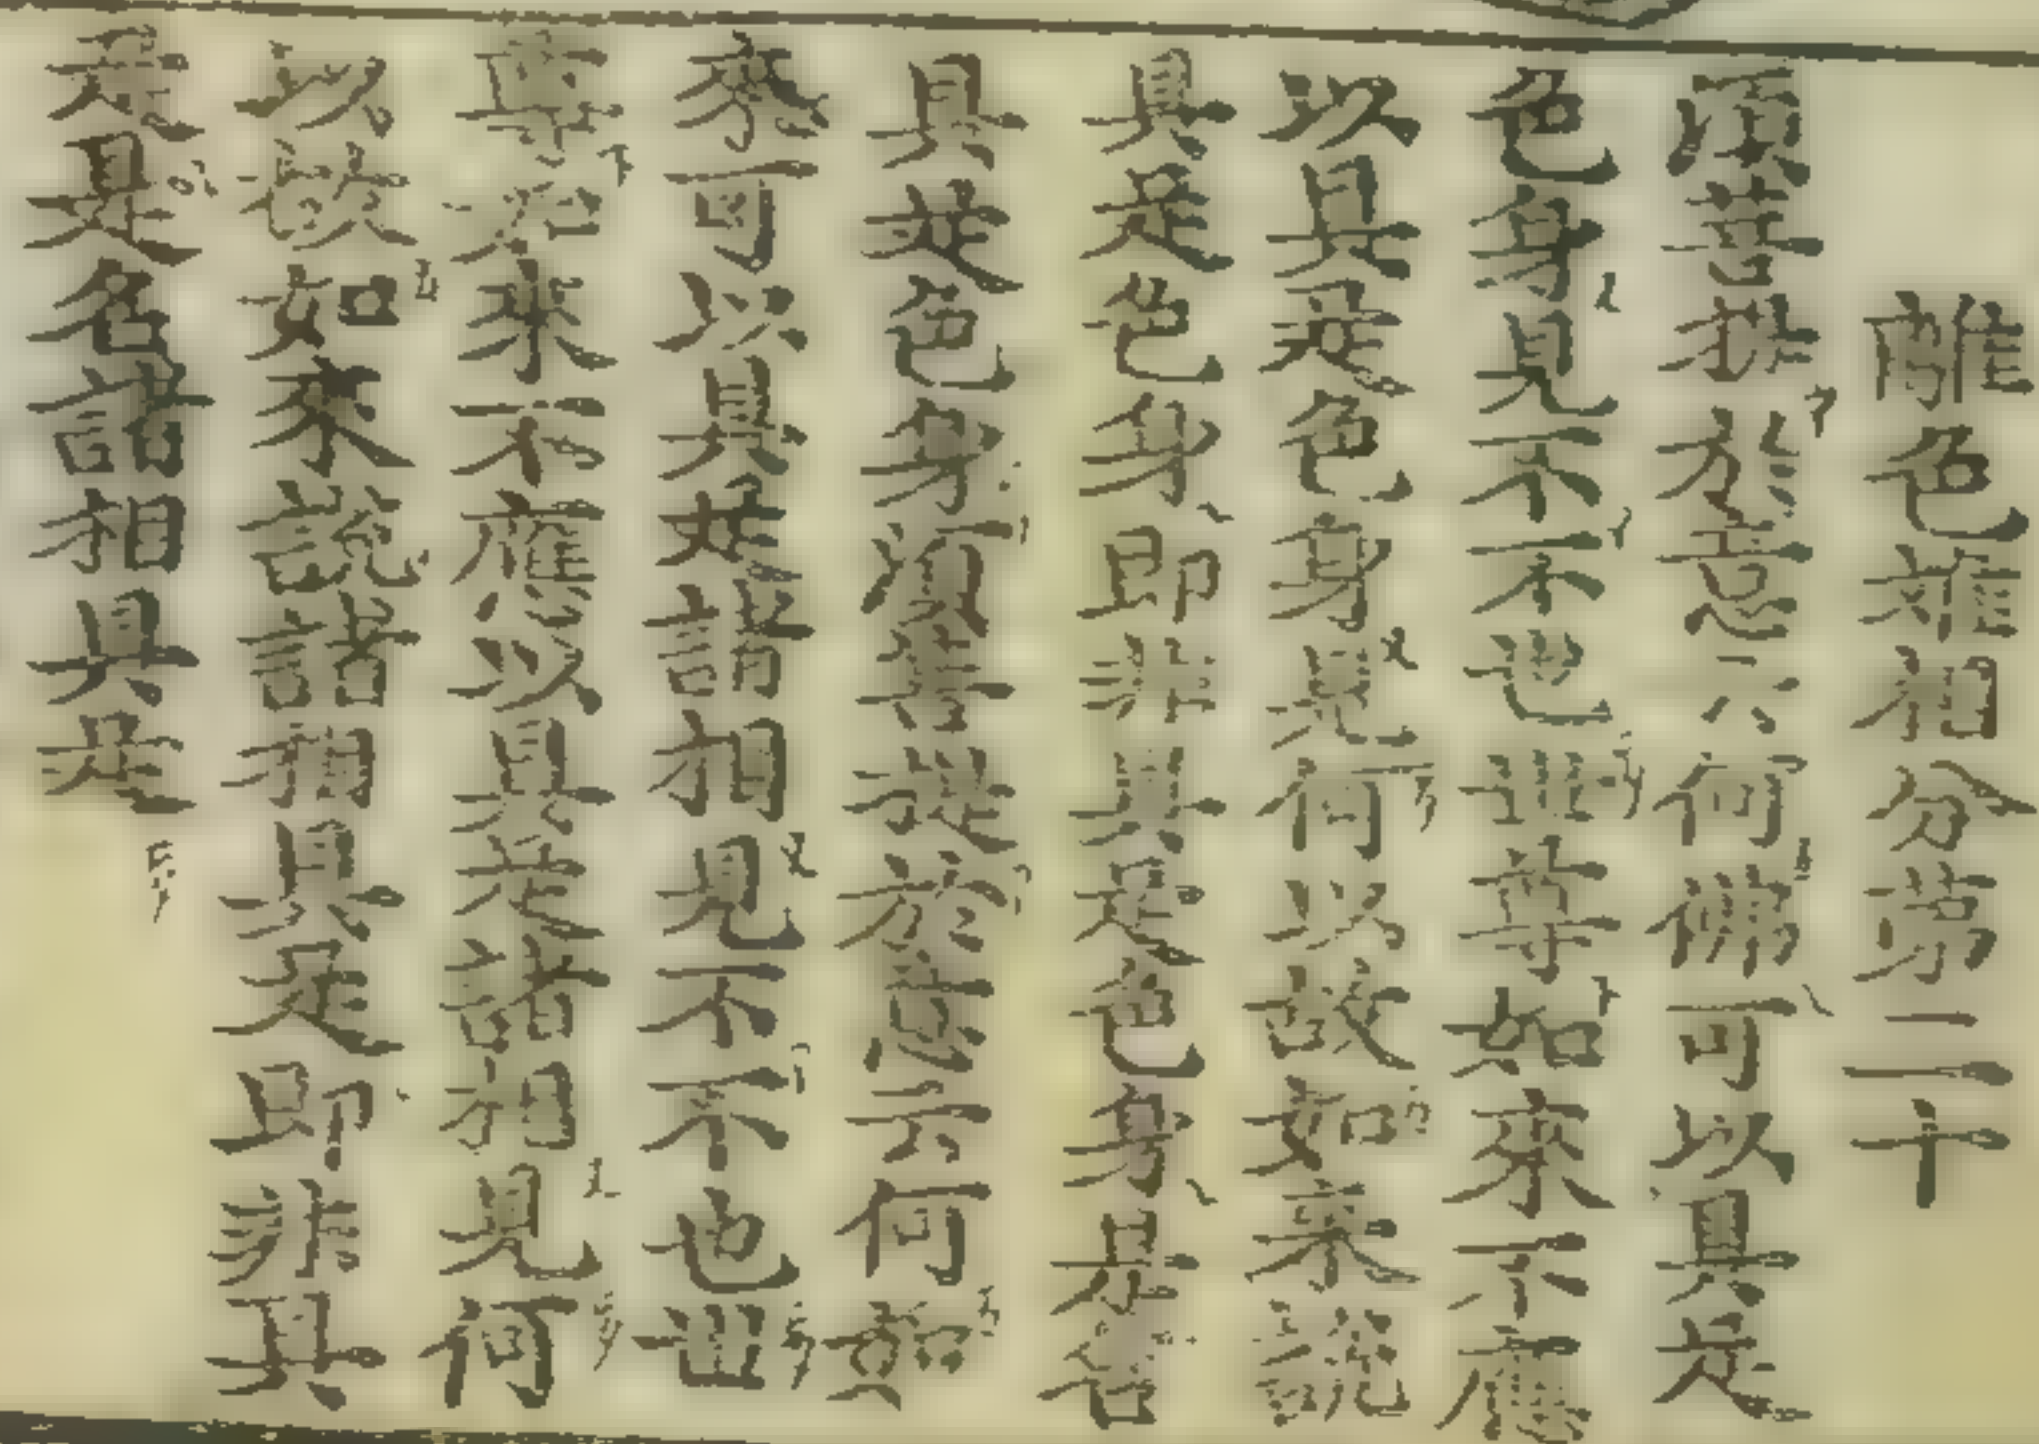 離色離相分第二十
須菩提於意云何佛可以具足
色身見不不也世尊如來不應
以具足色身見何以故如來說
具足色身即非具足色身是名
具足色身須菩提於意云何如
來可以具足諸相見不不也世
尊如來不應以具足諸相見何
以故如來說諸相具足即非具
足是名諸相具足